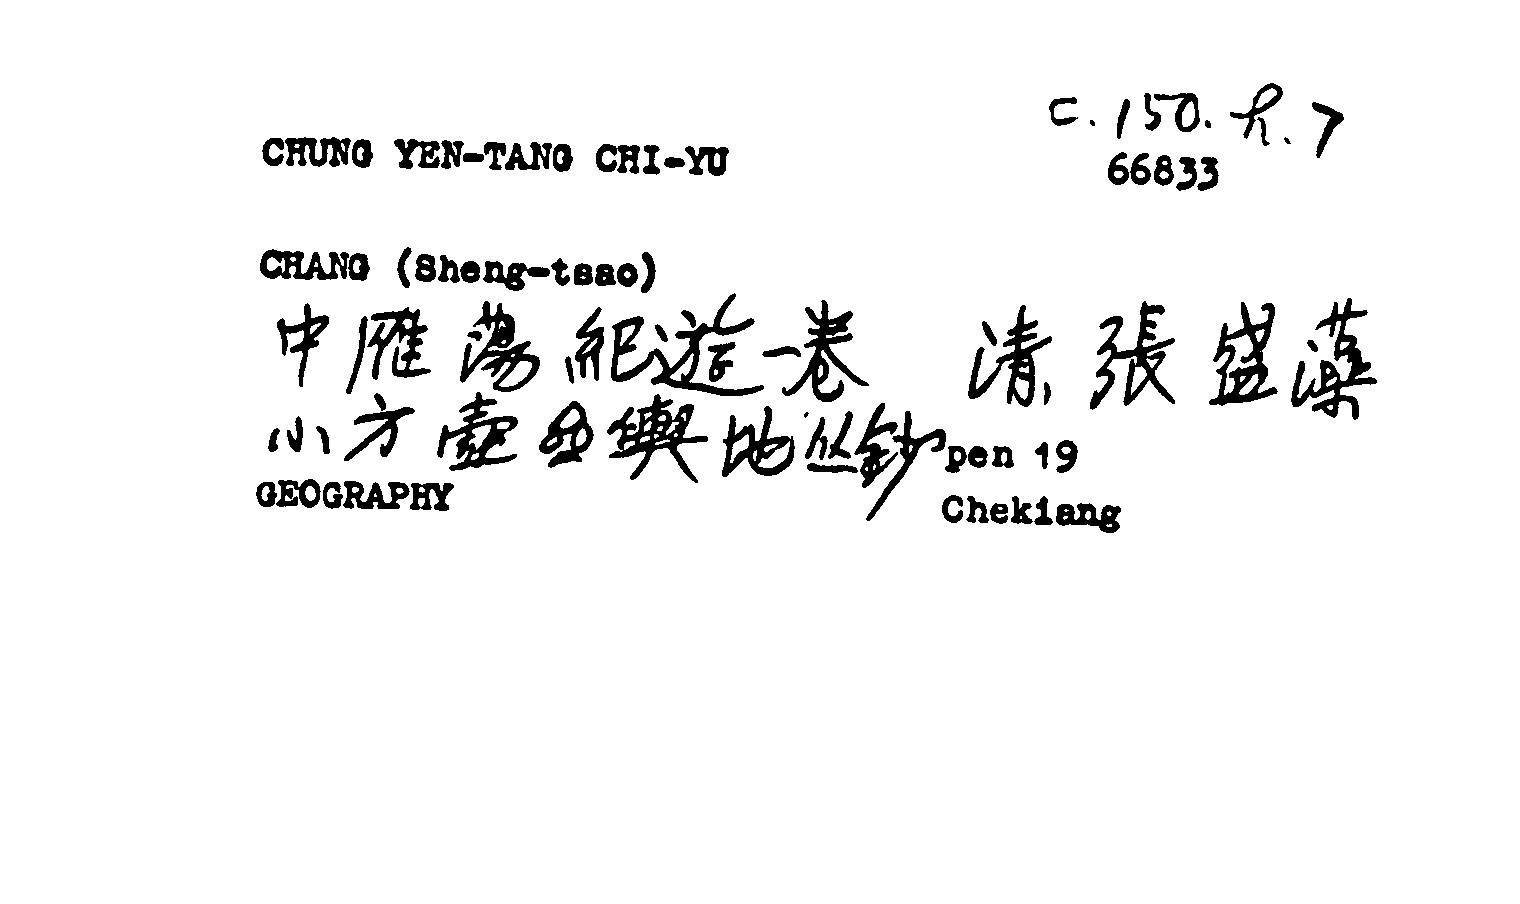 C. 150. h. 7
CHUNG YEN-TANG CHI-YU
66833
CHANG (Sheng-tsao)
中雁蕩紀遊一卷 清 張盛藻
小方壺齋輿地丛鈔 pen 19
GEOGRAPHY
Chekiang